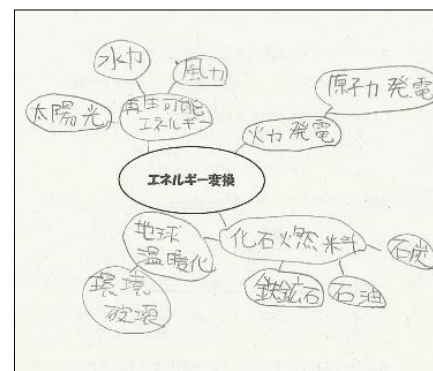 水力
風力
太陽光
再生可能
エネルギー
原子力発電
火力発電
エネルギー変換
地球
温暖化
化石燃料
石炭
環境
破壊
鉄鉱石
石油